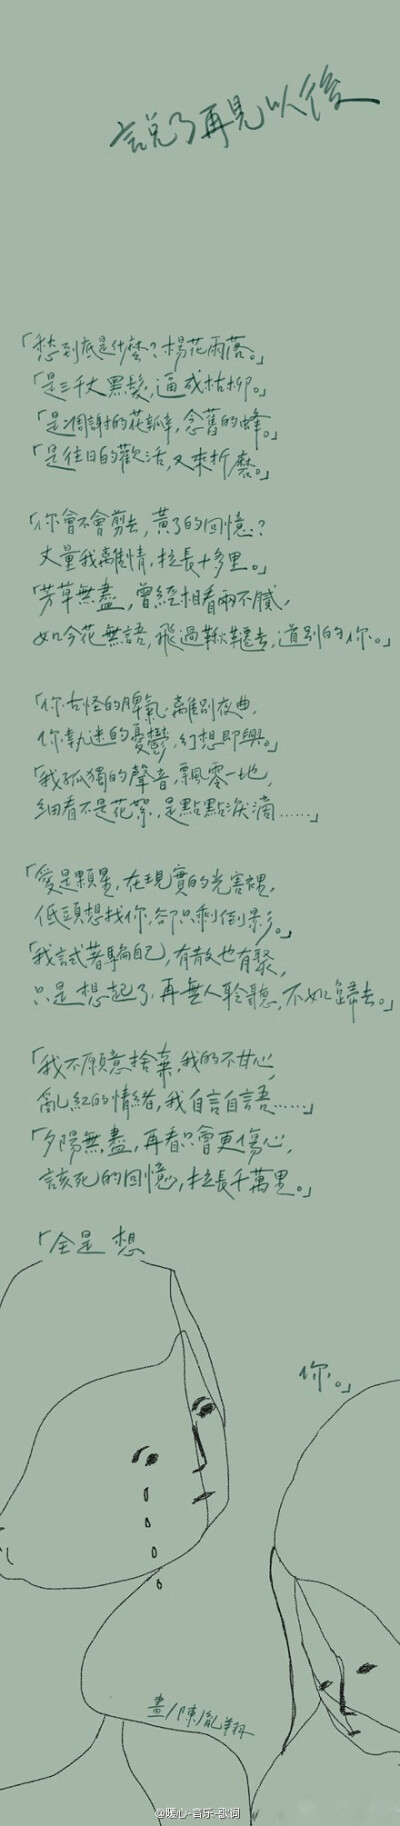 說了再見以後
「愁到底是什麼？楊花雨落。」
「是三千丈黑髮，逼成枯柳。」
「是凋謝的花瓣，念舊的蜂。」
「是往日的歡活，又來折磨。」
「你會不會剪去，黃了的回憶？
丈量我離情，拉長十多里。」
「芳草無盡，曾經相看兩不膩，
如今花無語，飛過鞦韆去，道別的你。」
「你古怪的脾氣，離別夜曲，
你執迷的憂鬱，幻想即興。」
「我孤獨的聲音，飄零一地，
細看不是花絮，是點點淚滴……」
「愛是顆星，在現實的光害裡，
低頭想找你，卻只剩倒影。」
「我試著騙自己，有散也有聚，
只是想起了，再無人聆聽，不如歸去。」
「我不願意捨棄，我的不甘心，
亂紅的情緒，我自言自語……」
「夕陽無盡，再看只會更傷心，
該死的回憶，拉長千萬里。」
「全是想
你。」
畫/陳亂翔
@暖心-音乐-歌词